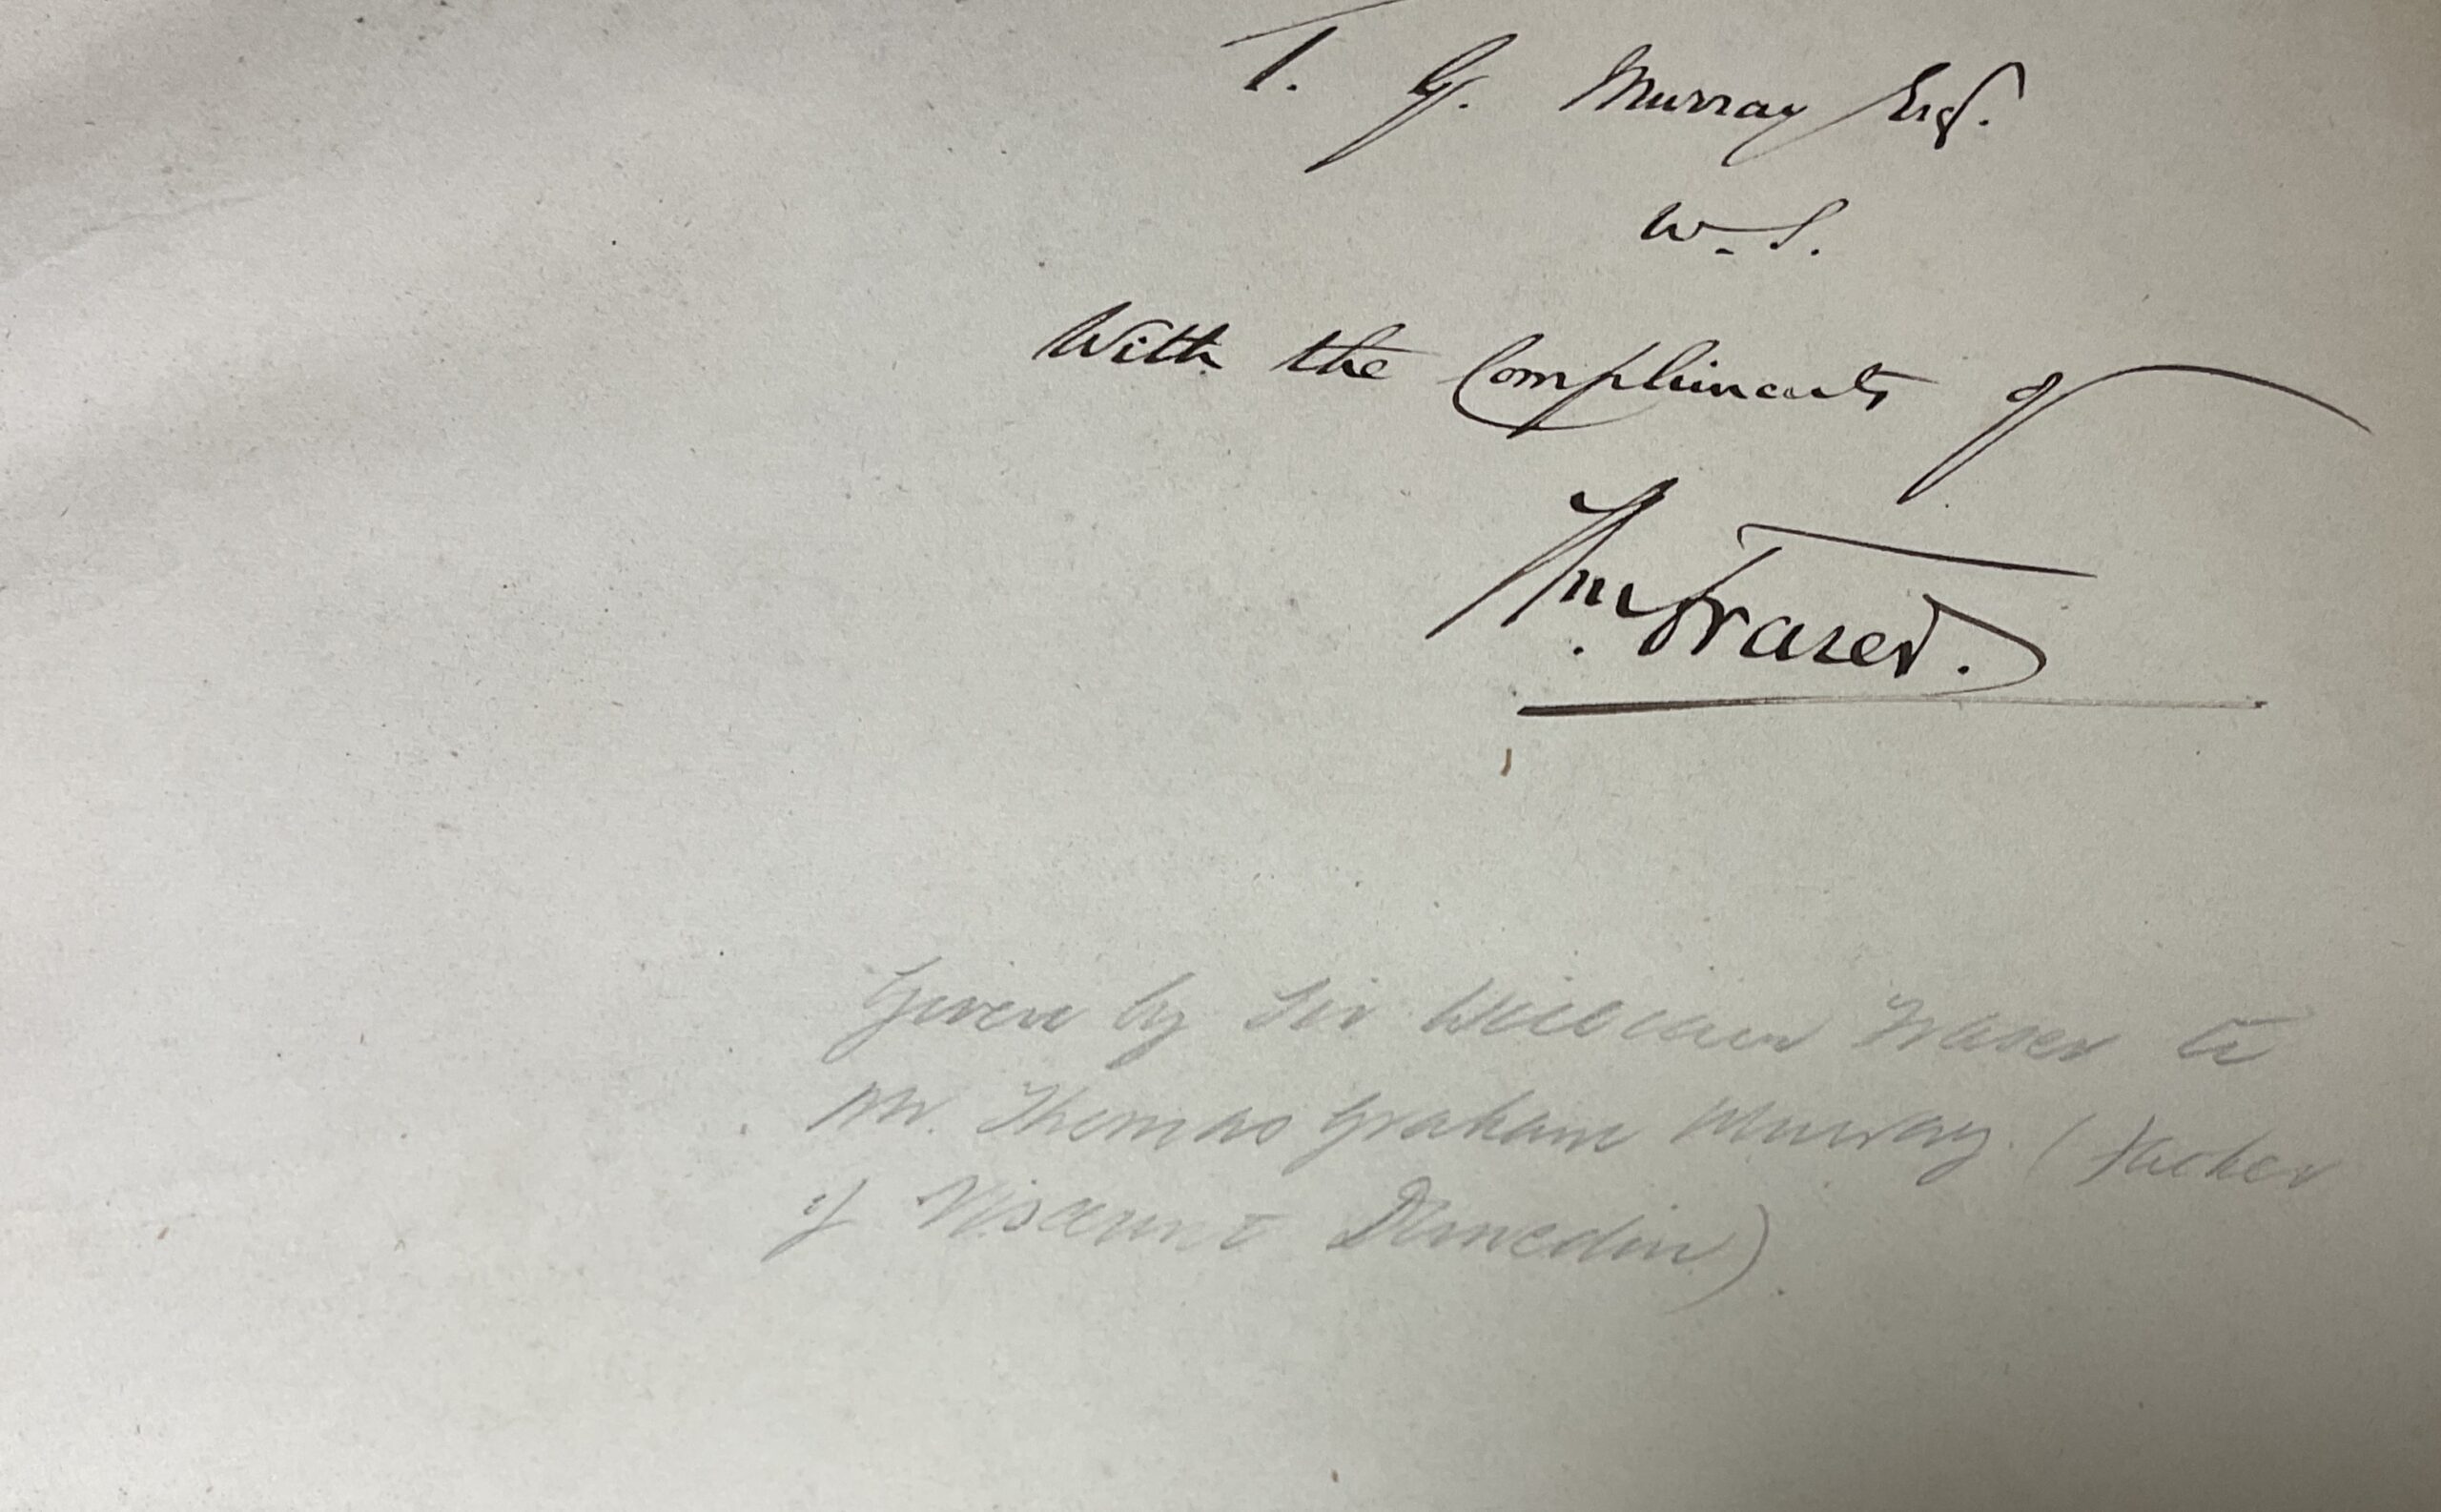 T. G. Murray Esq.
W. S.
With the Compliments of
Wm. Fraser.
Given by Sir William Fraser to
Mr. Thomas Graham Murray. (Father
of Viscount Dunedin).